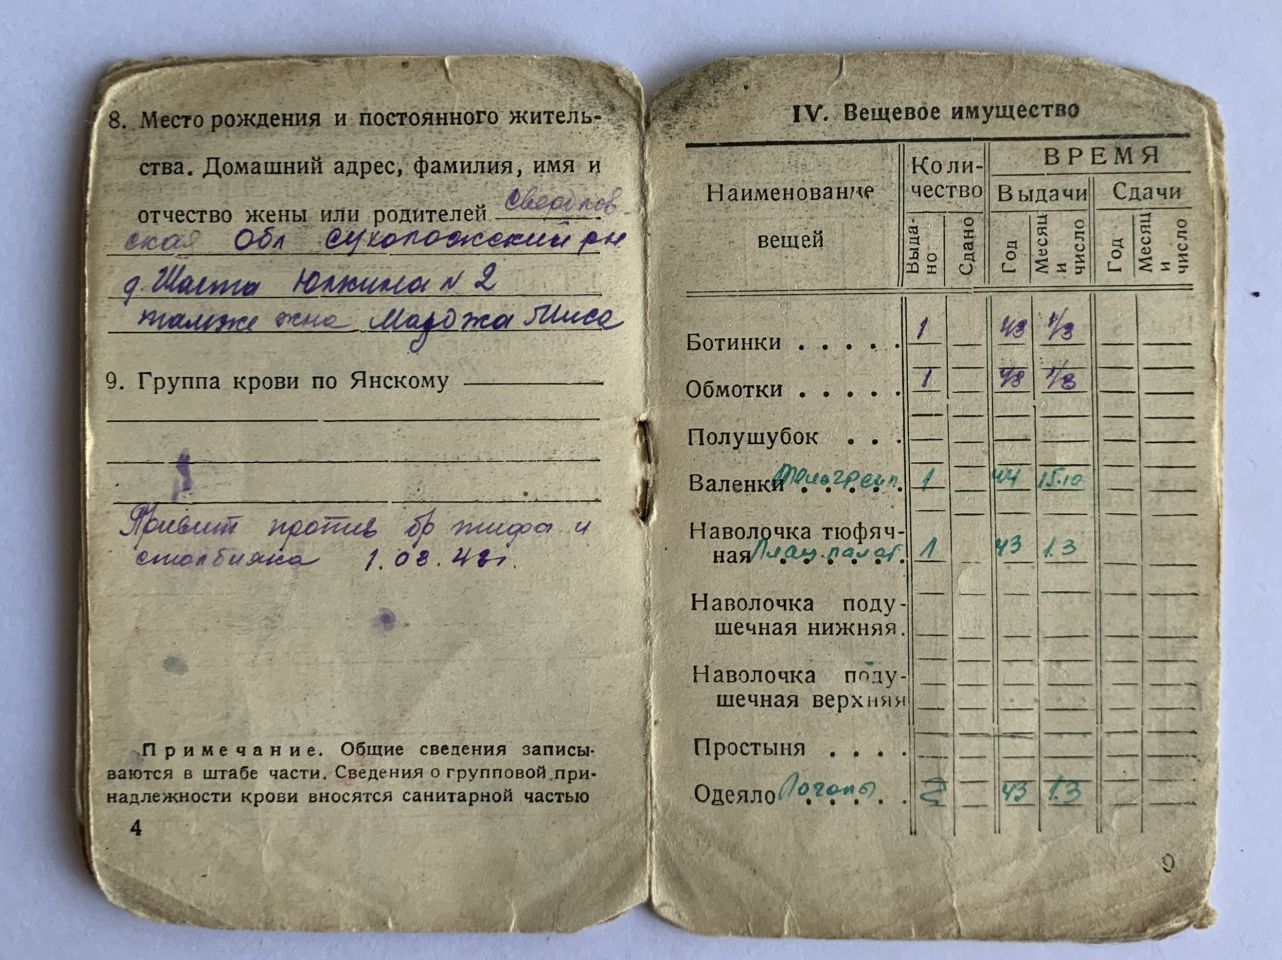 8. Место рождения и постоянного житель-
ства. Домашний адрес, фамилия, имя и
отчество жены или родителей Свердлов-
ская Обл Сухоложский рн
д. Шата Юлкина N 2
тамже жна Марджа Миса
9. Группа крови по Янскому
Привит против бр тифа и
столбняка 1.08.43г.
Примечание. Общие сведения записы-
ваются в штабе части. Сведения о групповой при-
надлежности крови вносятся санитарной частью
4
IV. Вещевое имущество
Наименование вещей
Коли-
чество
ВРЕМЯ
Выдачи
Сдачи
Выда-
но
Сдано
Год
Месяц
и
число
Год
Месяц
и
число
Ботинки . . . . . 1 43 1/3
Обмотки . . . . . 1 43 1/3
Полушубок . . .
Валенки Телогрейк . . . . . 1 44 15.10
Наволочка тюфяч-
ная Плащ.палат . . . . . . 1 43 1.3
Наволочка поду-
шечная нижняя.
Наволочка поду-
шечная верхняя
Простыня . . . .
Одеяло Погоны . . . . . 2 43 1.3
9